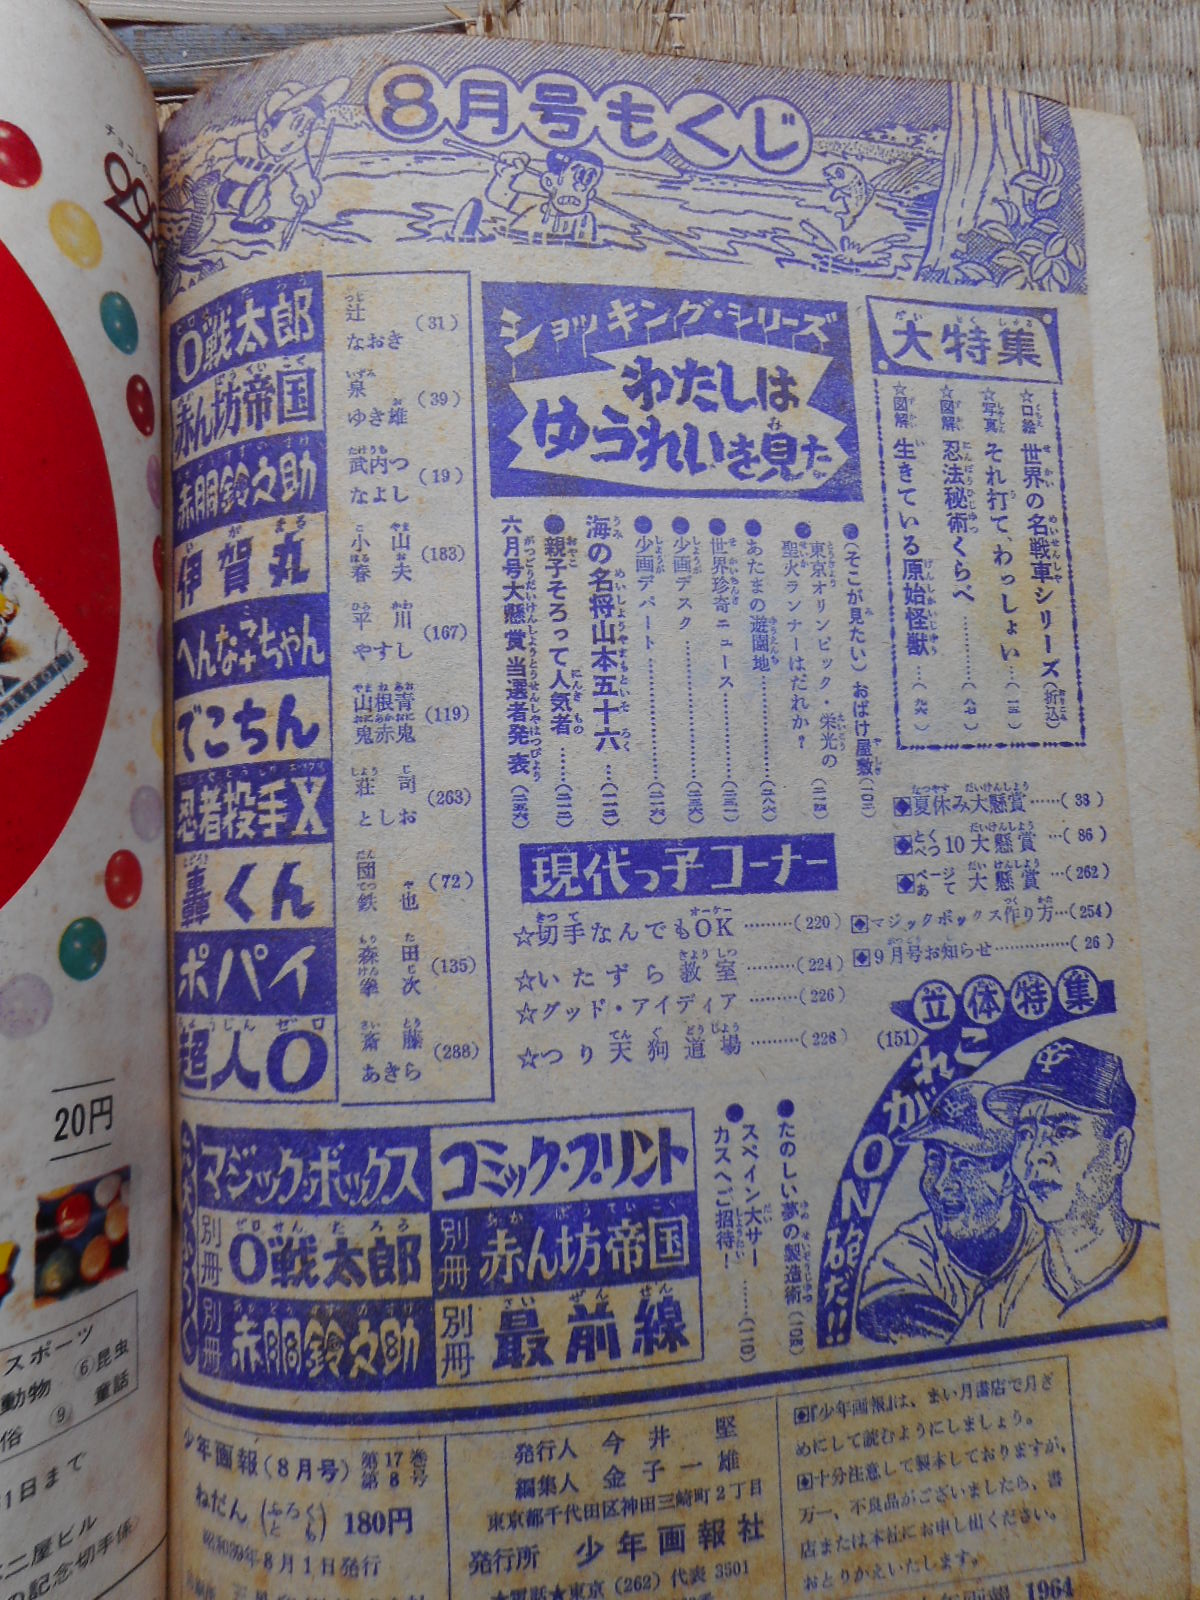 8月号もくじ
大特集
☆口絵 世界の名戦車シリーズ(折込)
☆写真 それ打て、わっしょい…(一三)
☆図解 忍法秘術くらべ
☆図解 生きている原始怪獣
ショッキング・シリーズ
わたしは
ゆうれいを見た
●(そこが見たい)おばけ屋敷(一〇二)
●東京オリンピック・栄光の
聖火ランナーはだれか?
●あたまの遊園地
●世界珍奇ニュース
●少画デスク
●少画デパート
海の名将山本五十六
●親子そろって人気者
六月号大懸賞当選者発表
0戦太郎 辻なおき (31)
赤ん坊帝国 泉ゆき雄 (39)
赤胴鈴之助 武内つなよし (19)
伊賀丸 小山春夫 (183)
へんな子ちゃん 平川やすし (167)
でこちん 山根青鬼 赤鬼 (119)
忍者投手X 荘司としお (263)
轟くん 団鉄也 (72)
ポパイ 森田拳次 (135)
超人0 斎藤あきら (288)
夏休み大懸賞……(38)
とくべつ10大懸賞…(86)
ページあて大懸賞…(262)
マジックボックス作り方…(254)
9月号お知らせ……(26)
現代っ子コーナー
☆切手なんでもOK………(220)
☆いたずら教室………(224)
☆グッド・アイディア………(226)
☆つり天狗道場………(228)
立体特集
(151)
これがON砲だ!!
●たのしい夢の製造術(105)
●スペイン大サー
カスへご招待!………(110)
マジックボックス
コミック・プリント
別冊 0戦太郎
別冊 赤ん坊帝国
別冊 赤胴鈴之助
別冊 最前線
少年画報(8月号)第17巻第8号
ねだん(ふろくとも)180円
昭和39年8月1日発行
発行人 今井堅
編集人 金子一雄
東京都千代田区神田三崎町2丁目
発行所 少年画報社
★電話★東京(262)代表3501
『少年画報』は、まい月書店で月ぎ
めにして読むようにしましょう。
十分注意して製本しておりますが、
万一、不良品がございましたら、書
店または本社にお申し出ください。
おとりかえいたします。
1964
20円
スポーツ
動物 ⑥昆虫
俗 ⑨ 童話
1日まで
二屋ビル
の記念切手係